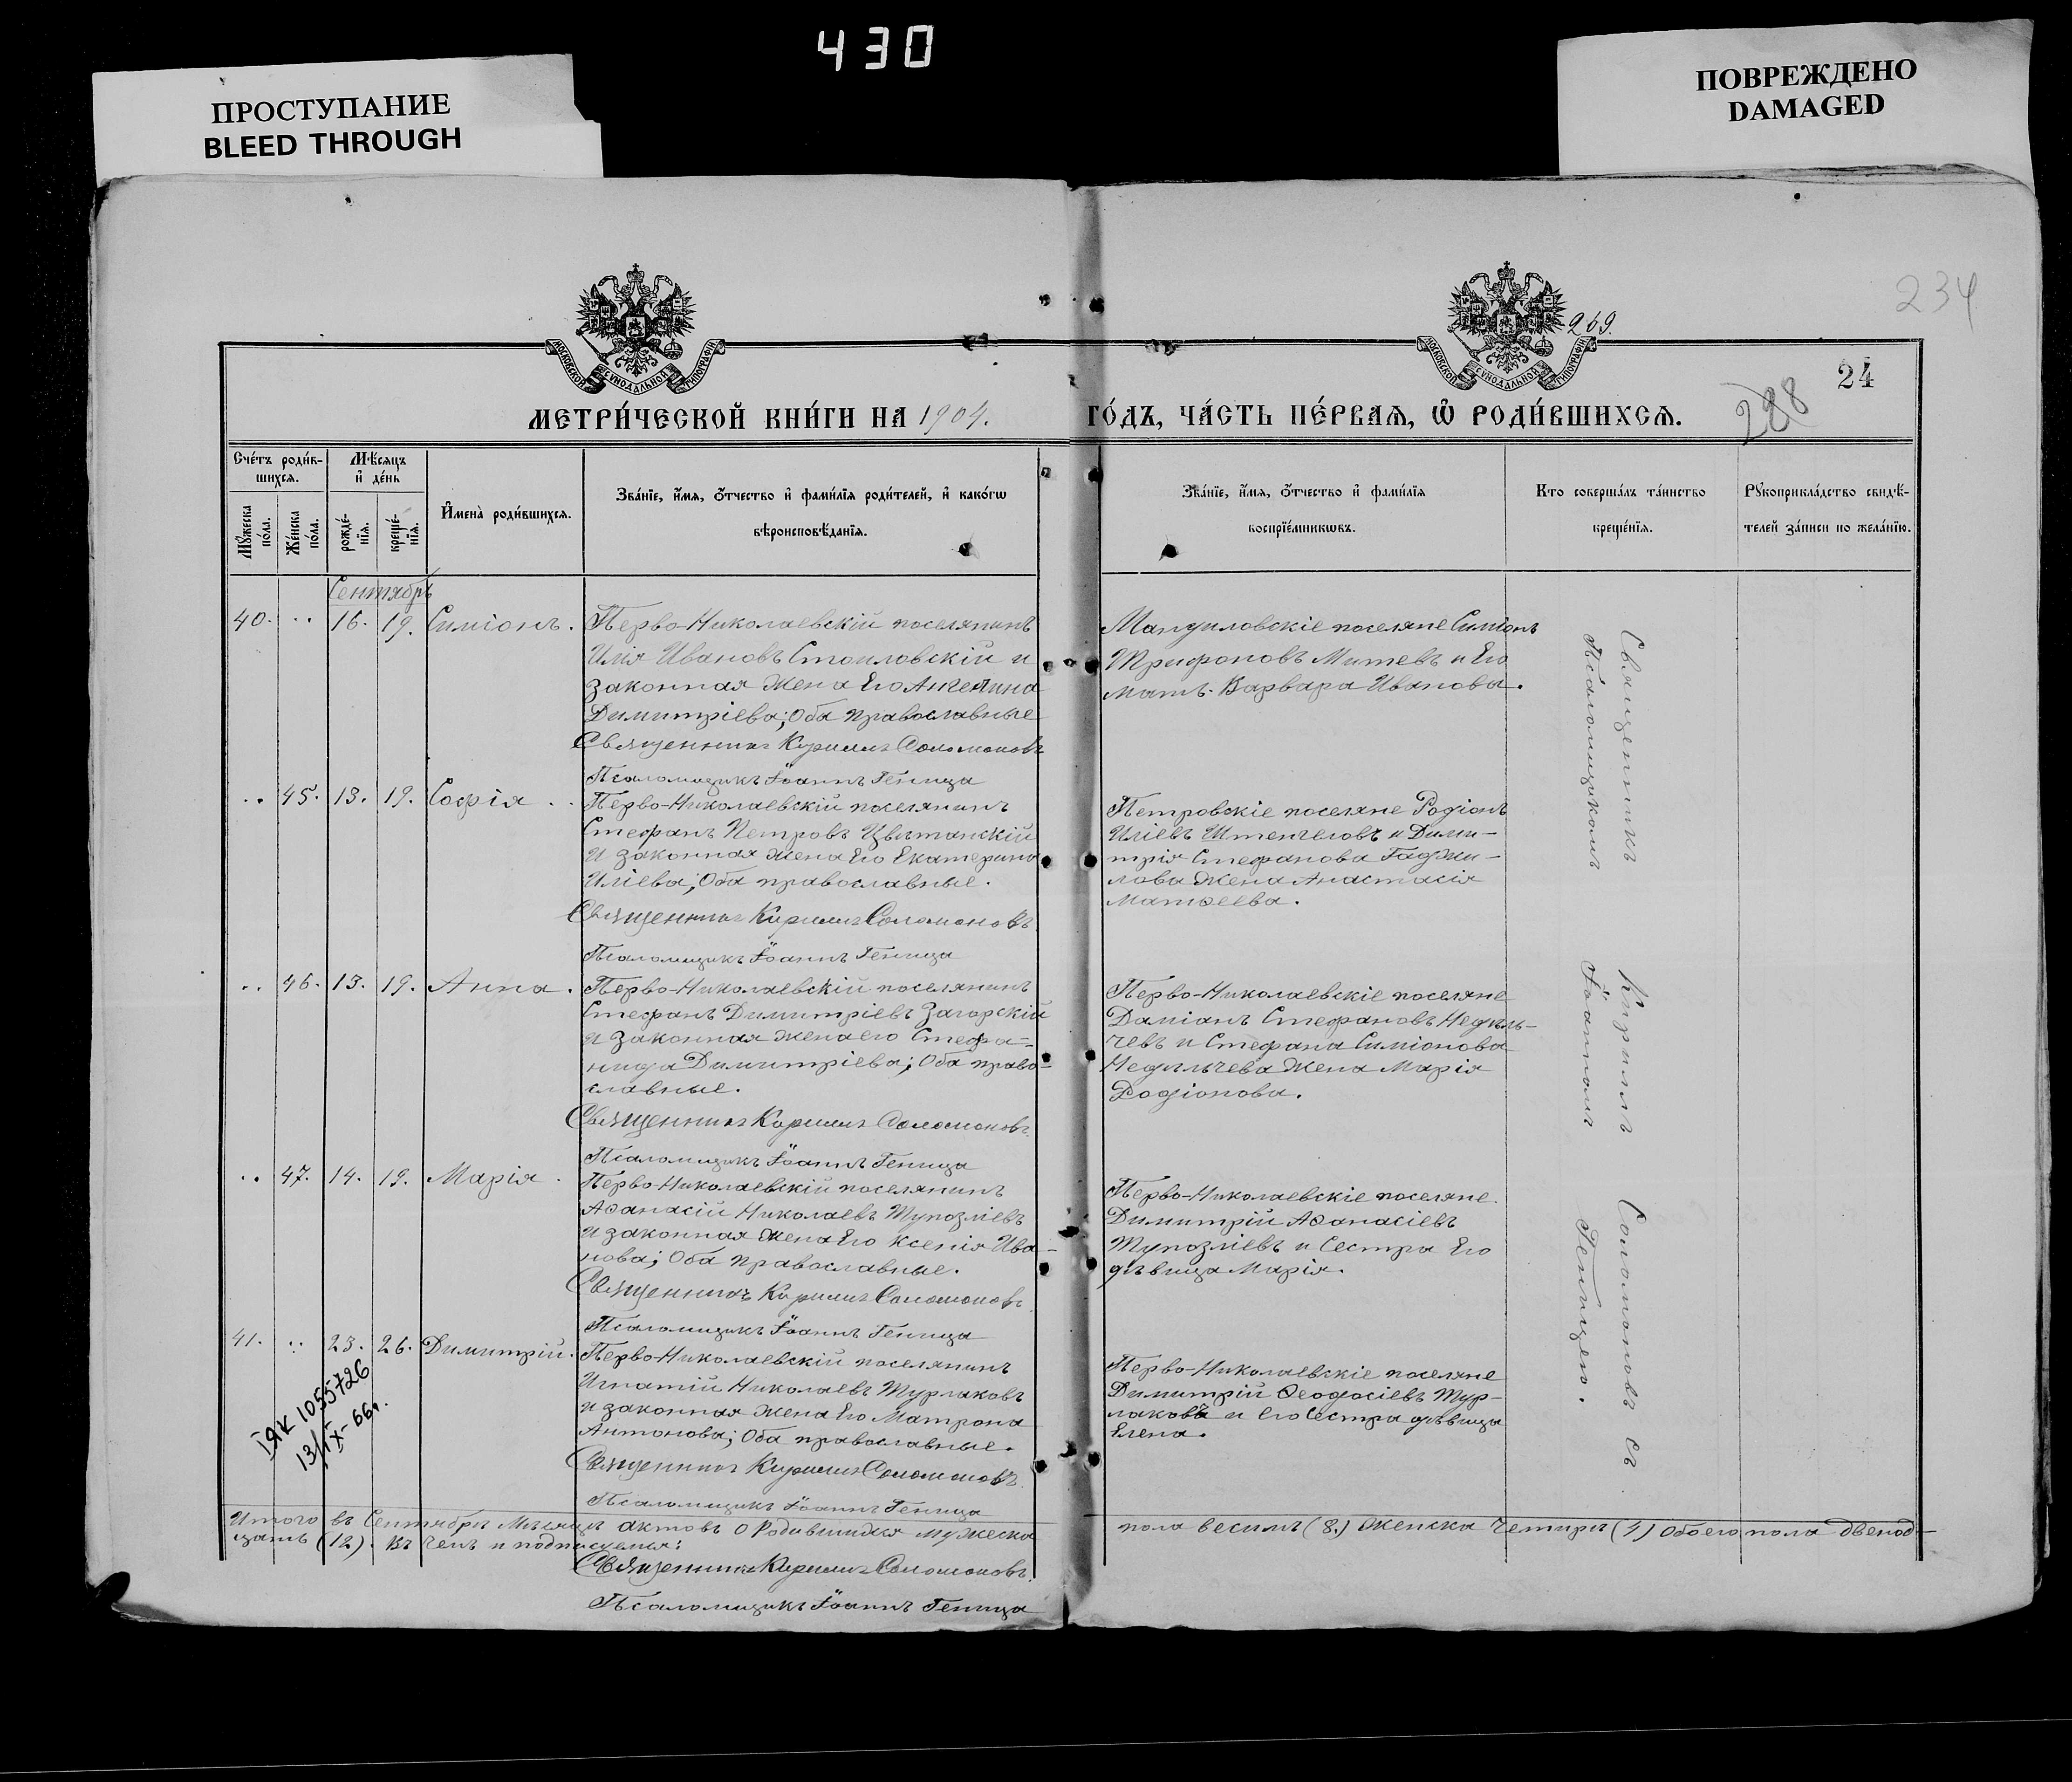 430
ПРОСТУПАНИЕ
BLEED THROUGH
ПОВРЕЖДЕНО
DAMAGED
234
269.
24
288
МОСКОВСКОЙ СѴНОДАЛЬНОЙ ТИПОГРАФІИ
МОСКОВСКОЙ СѴНОДАЛЬНОЙ ТИПОГРАФІИ
МЕТРИ́ЧЕСКОЙ КНИ́ГИ НА 1904. ГО́ДЪ, ЧА́СТЬ ПЕ́РВАЯ, Ѽ РОДИ́ВШИХСЯ.
Сче́тъ роди́в-
шихся.
Мѣ́сяцъ
и҆ де́нь
Мꙋ́жеска
по́ла.
Же́нска
по́ла.
рожде́-
нїя.
креще́-
нїя.
И҆мена̀ роди́вшихся.
Зва́нїе, и҆́мя, ѻ҆́тчество и҆ фами́лїя роди́телей, и҆ како́гѡ
вѣроисповѣ́данїя.
Зва́нїе, и҆́мя, ѻ҆́тчество и҆ фами́лїя
воспрїе́мникѡвъ.
Кто соверша́лъ та́инство
креще́нїя.
Рꙋкоприкла́дство свидѣ́-
телей за́писи по жела́нїю.
Сентябрь
40. .. 16. 19. Симіонъ.
Перво-Николаевскій поселянинъ
Илія Ивановъ Стоиловскій и
законная жена Его Ангелина
Димитріева; Оба православные
Священникъ Кириллъ Соломоновъ
Псаломщикъ Іоаннъ Геница
Мандиловскіе поселяне Симіонъ
Трифоновъ Митевъ и Его
мать Варвара Иванова.
.. 45. 13. 19. Софія.
Перво-Николаевскій поселянинъ
Стефанъ Петровъ Цвѣтанскій
и законная жена Его Екатерина
Иліева; Оба православные.
Священникъ Кириллъ Соломоновъ
Псаломщикъ Іоаннъ Геница
Петровскіе поселяне Родіонъ
Иліевъ Штенгеловъ и Дими-
трія Стефанова Гаджи-
лова жена Анастасія
Матѳеева.
.. 46. 13. 19. Анна.
Перво-Николаевскій поселянинъ
Стефанъ Димитріевъ Загорскій
и законная жена его Стефа-
нида Димитріева; Оба право-
славные.
Священникъ Кириллъ Соломоновъ
Псаломщикъ Іоаннъ Геница
Перво-Николаевскіе поселяне
Даміанъ Стефановъ Недѣль-
чевъ и Стефана Симіонова
Недѣльчева жена Марія
Родіонова.
.. 47. 14. 19. Марія.
Перво-Николаевскій поселянинъ
Аѳанасій Николаевъ Тупозліевъ
и законная жена Его Ксенія Ива-
нова; Оба православные.
Священникъ Кириллъ Соломоновъ
Псаломщикъ Іоаннъ Геница
Перво-Николаевскіе поселяне.
Димитрій Аѳанасіевъ
Тупозліевъ и Сестра Его
дѣвица Марія.
41. .. 23. 26. Димитрій.
Перво-Николаевскій поселянинъ
Игнатій Николаевъ Турлаковъ
и законная жена Его Матрона
Антонова; Оба православные.
Священникъ Кириллъ Соломоновъ
Псаломщикъ Іоаннъ Геница
Перво-Николаевскіе поселяне
Димитрій Ѳеодосіевъ Тур-
лаковъ и его Сестра дѣвица
Елена.
ІЯК 1055726
13/IX-66г.
Священникъ Кириллъ Соломоновъ съ
Псаломщикомъ Іоанномъ Геницею.
Итого въ Сентябрѣ Мѣсяцѣ актовъ о Родившихся мужеска пола весимъ (8.) женска Четыри (4) Обоего пола двенад-
цать (12). Въ чемъ и подписуемся:
Священникъ Кириллъ Соломоновъ
Псаломщикъ Іоаннъ Геница